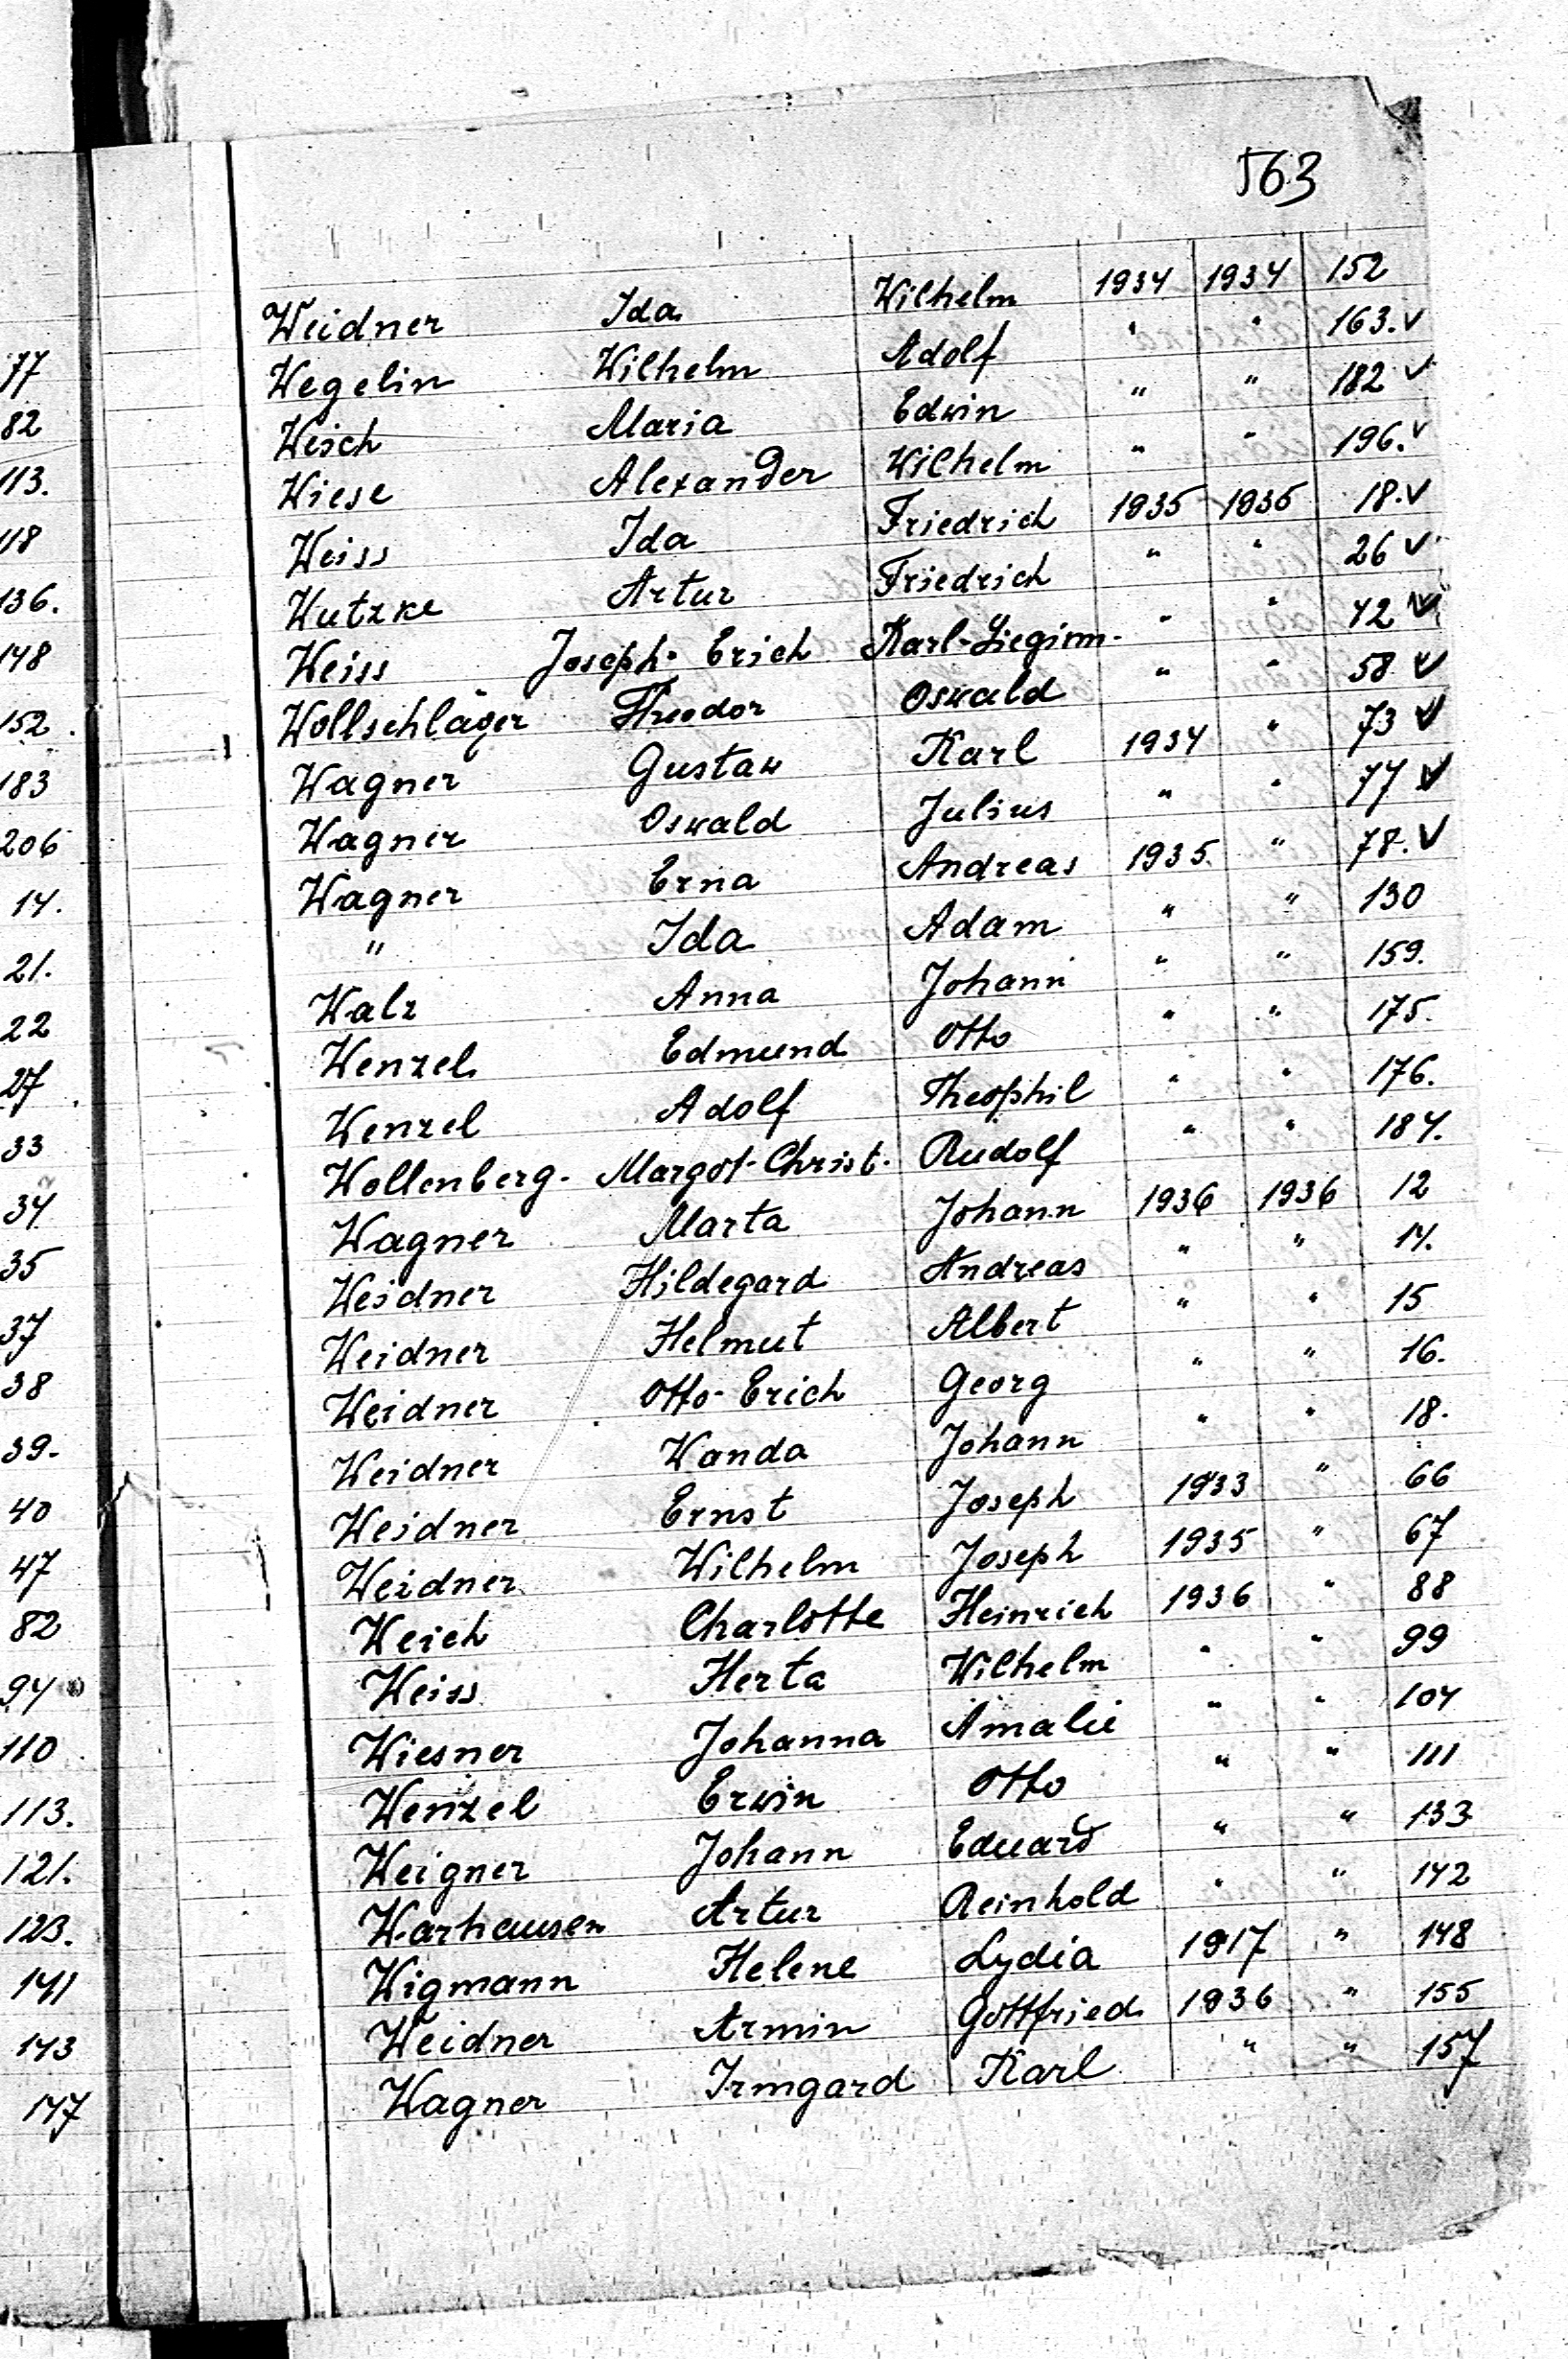 563
Weidner Ida Wilhelm 1934 1934 152
Wegelin Wilhelm Adolf " " 163. v
Weich Maria Edwin " " 182 v
Wiese Alexander Wilhelm " " 196. v
Weiss Ida Friedrich 1935 1935 18. v
Wutzke Artur Friedrich " " 26 v
Weiss Joseph-Erich Karl-Siegism- " " 42 v
Wollschläger Theodor Oswald " " 58 v
Wagner Gustaw Karl 1934 " 73 v
Wagner Oswald Julius " " 77 v
Wagner Erna Andreas 1935 " 78. v
" Ida Adam " " 130
Walz Anna Johann " " 159.
Wenzel Edmund Otto " " 175.
Wenzel Adolf Theophil " " 176.
Wollenberg. Margot-Christ. Rudolf " " 184.
Wagner Marta Johann 1936 1936 12
Weidner Hildegard Andreas " " 14.
Weidner Helmut Albert " " 15
Weidner Otto-Erich Georg " " 16.
Weidner Wanda Johann " " 18.
Weidner Ernst Joseph 1933 " 66
Weidner Wilhelm Joseph 1935 " 67
Weich Charlotte Heinrich 1936 " 88
Weiss Herta Wilhelm " " 99
Wiesner Johanna Amalie " " 104
Wenzel Erwin Otto " " 111
Weigner Johann Eduard " " 133
Warhausen Artur Reinhold " " 142
Wigmann Helene Lydia 1917 " 148
Weidner Armin Gottfried 1936 " 155
Wagner Irmgard Karl " " 157
77
82
113.
118
136.
148
152.
183
206
14.
21.
22
27
33
34
35
37
38
39.
40
47
82
94
110
113.
121.
123.
141
143
147